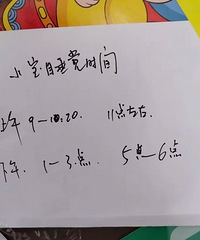 小宝自主觉时间
上午 9-10:20. 11点左右.
下午. 1-3点. 5点-6点